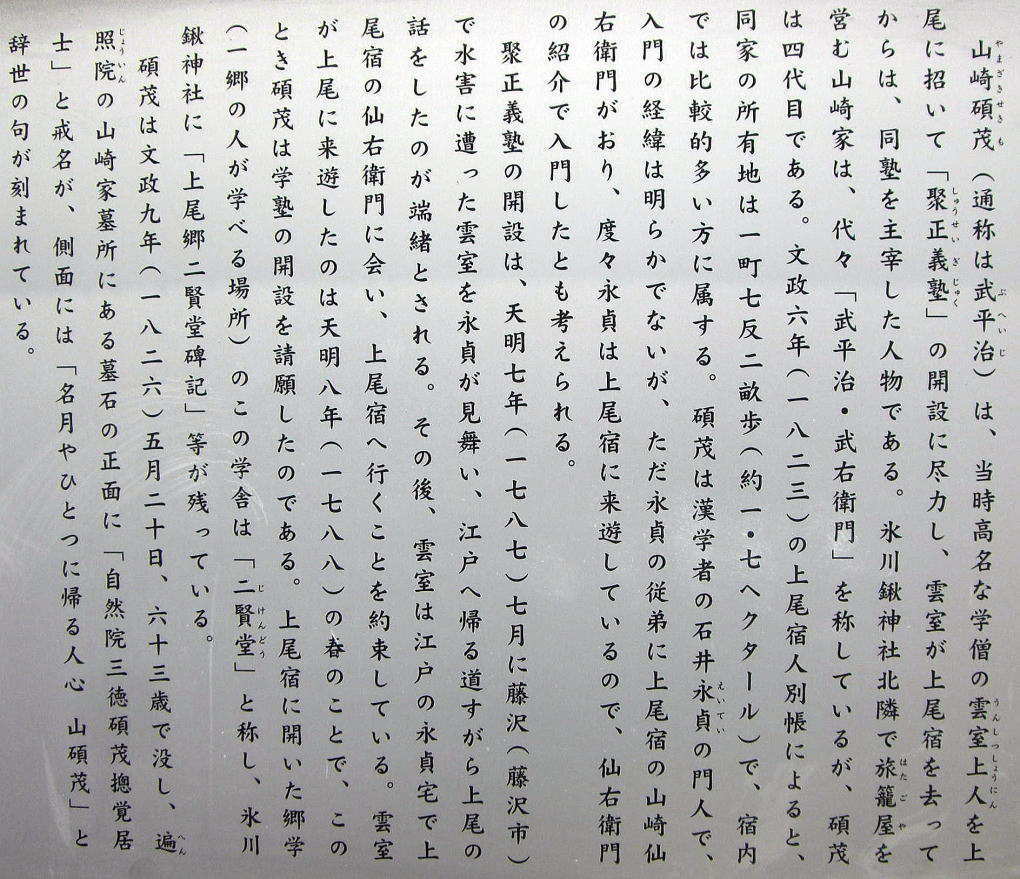 山崎碩茂（通称は武平治）は、当時高名な学僧の雲室上人を上
尾に招いて「聚正義塾」の開設に尽力し、雲室が上尾宿を去って
からは、同塾を主宰した人物である。氷川鍬神社北隣で旅籠屋を
営む山崎家は、代々「武平治・武右衛門」を称しているが、碩茂
は四代目である。文政六年（一八二三）の上尾宿人別帳によると、
同家の所有地は一町七反二畝歩（約一・七ヘクタール）で、宿内
では比較的多い方に属する。碩茂は漢学者の石井永貞の門人で、
入門の経緯は明らかでないが、ただ永貞の従弟に上尾宿の山崎仙
右衛門がおり、度々永貞は上尾宿に来遊しているので、仙右衛門
の紹介で入門したとも考えられる。
聚正義塾の開設は、天明七年（一七八七）七月に藤沢（藤沢市）
で水害に遭った雲室を永貞が見舞い、江戸へ帰る道すがら上尾の
話をしたのが端緒とされる。その後、雲室は江戸の永貞宅で上
尾宿の仙右衛門に会い、上尾宿へ行くことを約束している。雲室
が上尾に来遊したのは天明八年（一七八八）の春のことで、この
とき碩茂は学塾の開設を請願したのである。上尾宿に開いた郷学
（一郷の人が学べる場所）のこの学舎は「二賢堂」と称し、氷川
鍬神社に「上尾郷二賢堂碑記」等が残っている。
碩茂は文政九年（一八二六）五月二十日、六十三歳で没し、遍
照院の山崎家墓所にある墓石の正面に「自然院三徳碩茂摠覚居
士」と戒名が、側面には「名月やひとつに帰る人心　山碩茂」と
辞世の句が刻まれている。